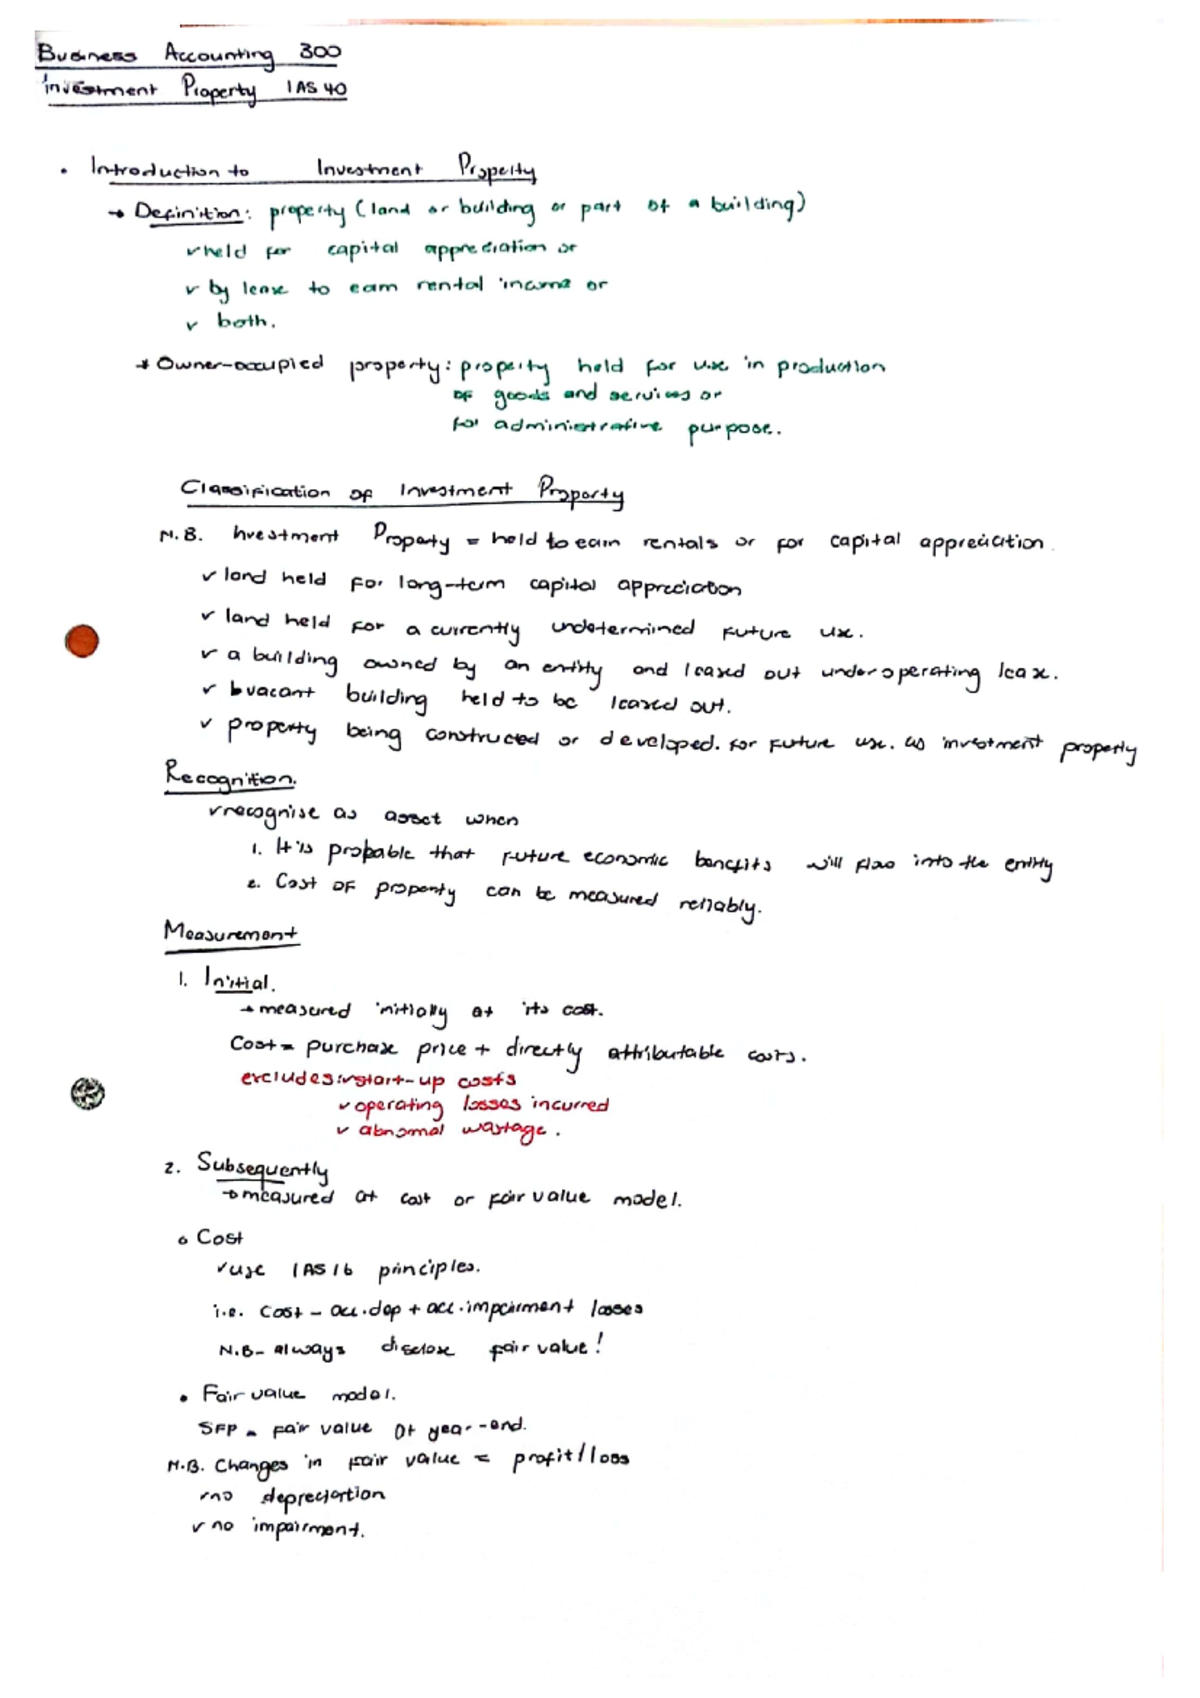 Business Accounting 300
Investment Property IAS 40
• Introduction to Investment Property
→ Definition: property (land or building or part of a building)
✓ held for capital appreciation or
✓ by lease to earn rental income or
✓ both.
* Owner-occupied property: property held for use in production
of goods and services or
for administrative purpose.
Classification of Investment Property
N.B. Investment Property = held to earn rentals or for capital appreciation.
✓ land held for long-term capital appreciation
✓ land held for a currently undetermined future use.
✓ a building owned by an entity and leased out under operating lease.
✓ bvacant building held to be leased out.
✓ property being constructed or developed. for future use. as investment property
Recognition.
✓ recognise as asset when
1. It is probable that future economic benefits will flow into the entity
2. Cost of property can be measured reliably.
Measurement
1. Initial.
→ measured initially at its cost.
Cost = purchase price + directly attributable costs.
excludes: ✓ start-up costs
✓ operating losses incurred
✓ abnormal wastage.
2. Subsequently
→ measured at cost or fair value model.
o Cost
✓ use IAS 16 principles.
i.e. cost – acc.dep + acc.impairment losses
N.B – always disclose fair value!
• Fair value model.
SFP = fair value at year-end.
N.B. Changes in fair value = profit/loss
✓ no depreciation
✓ no impairment.